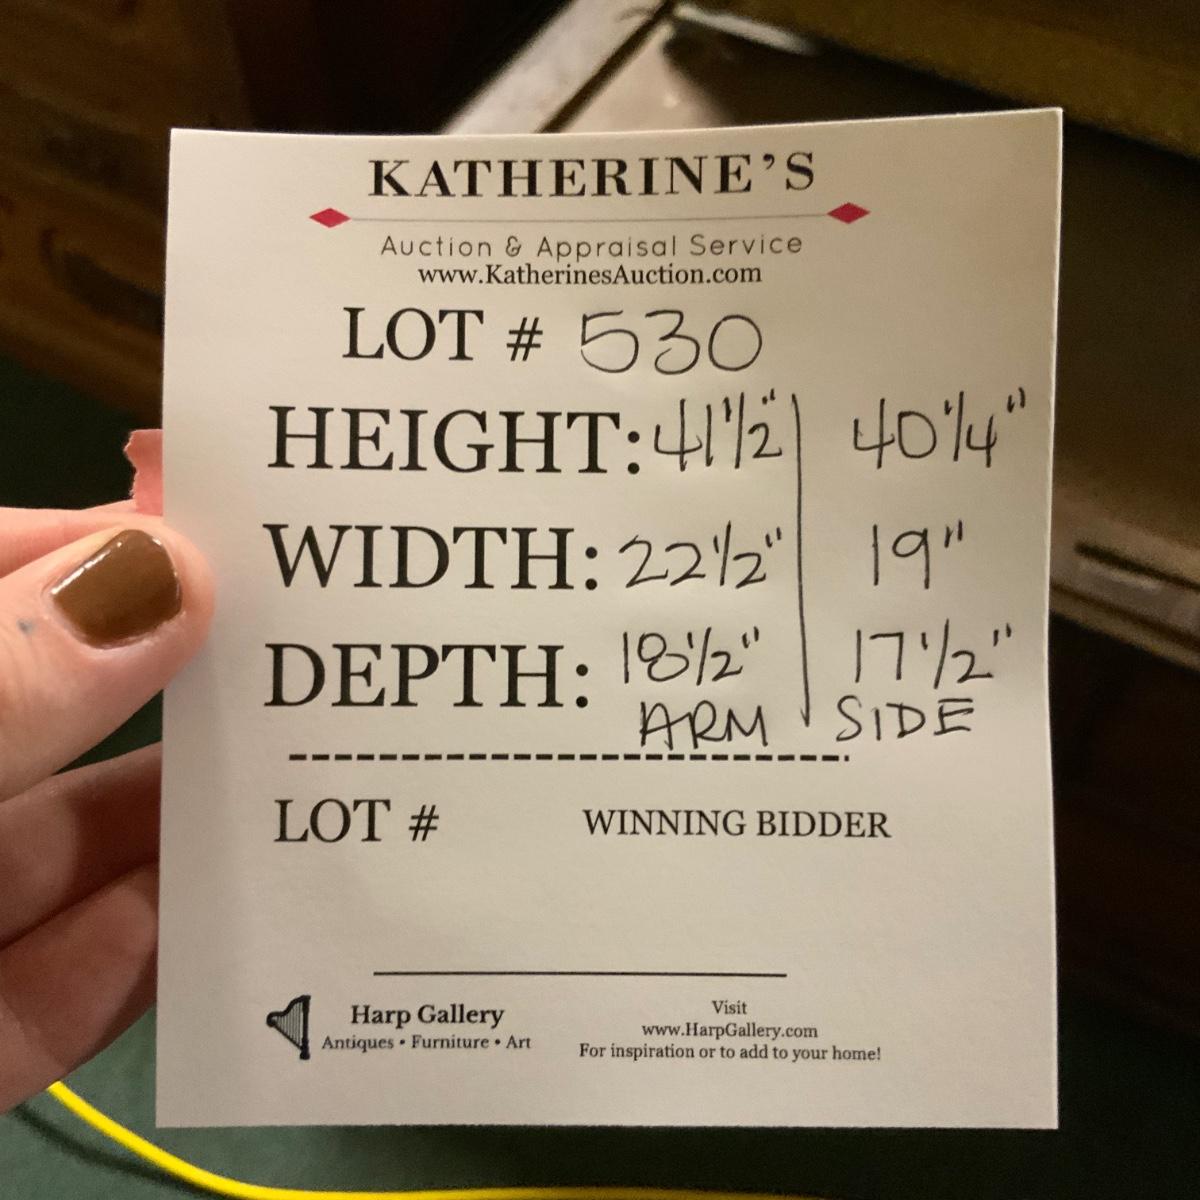 KATHERINE'S
Auction & Appraisal Service
www.KatherinesAuction.com
LOT # 530
HEIGHT: 41 1/2" 40 1/4"
WIDTH: 22 1/2" 19"
DEPTH: 18 1/2" 17 1/2"
ARM SIDE
LOT # WINNING BIDDER
Harp Gallery
Antiques • Furniture • Art
Visit
www.HarpGallery.com
For inspiration or to add to your home!